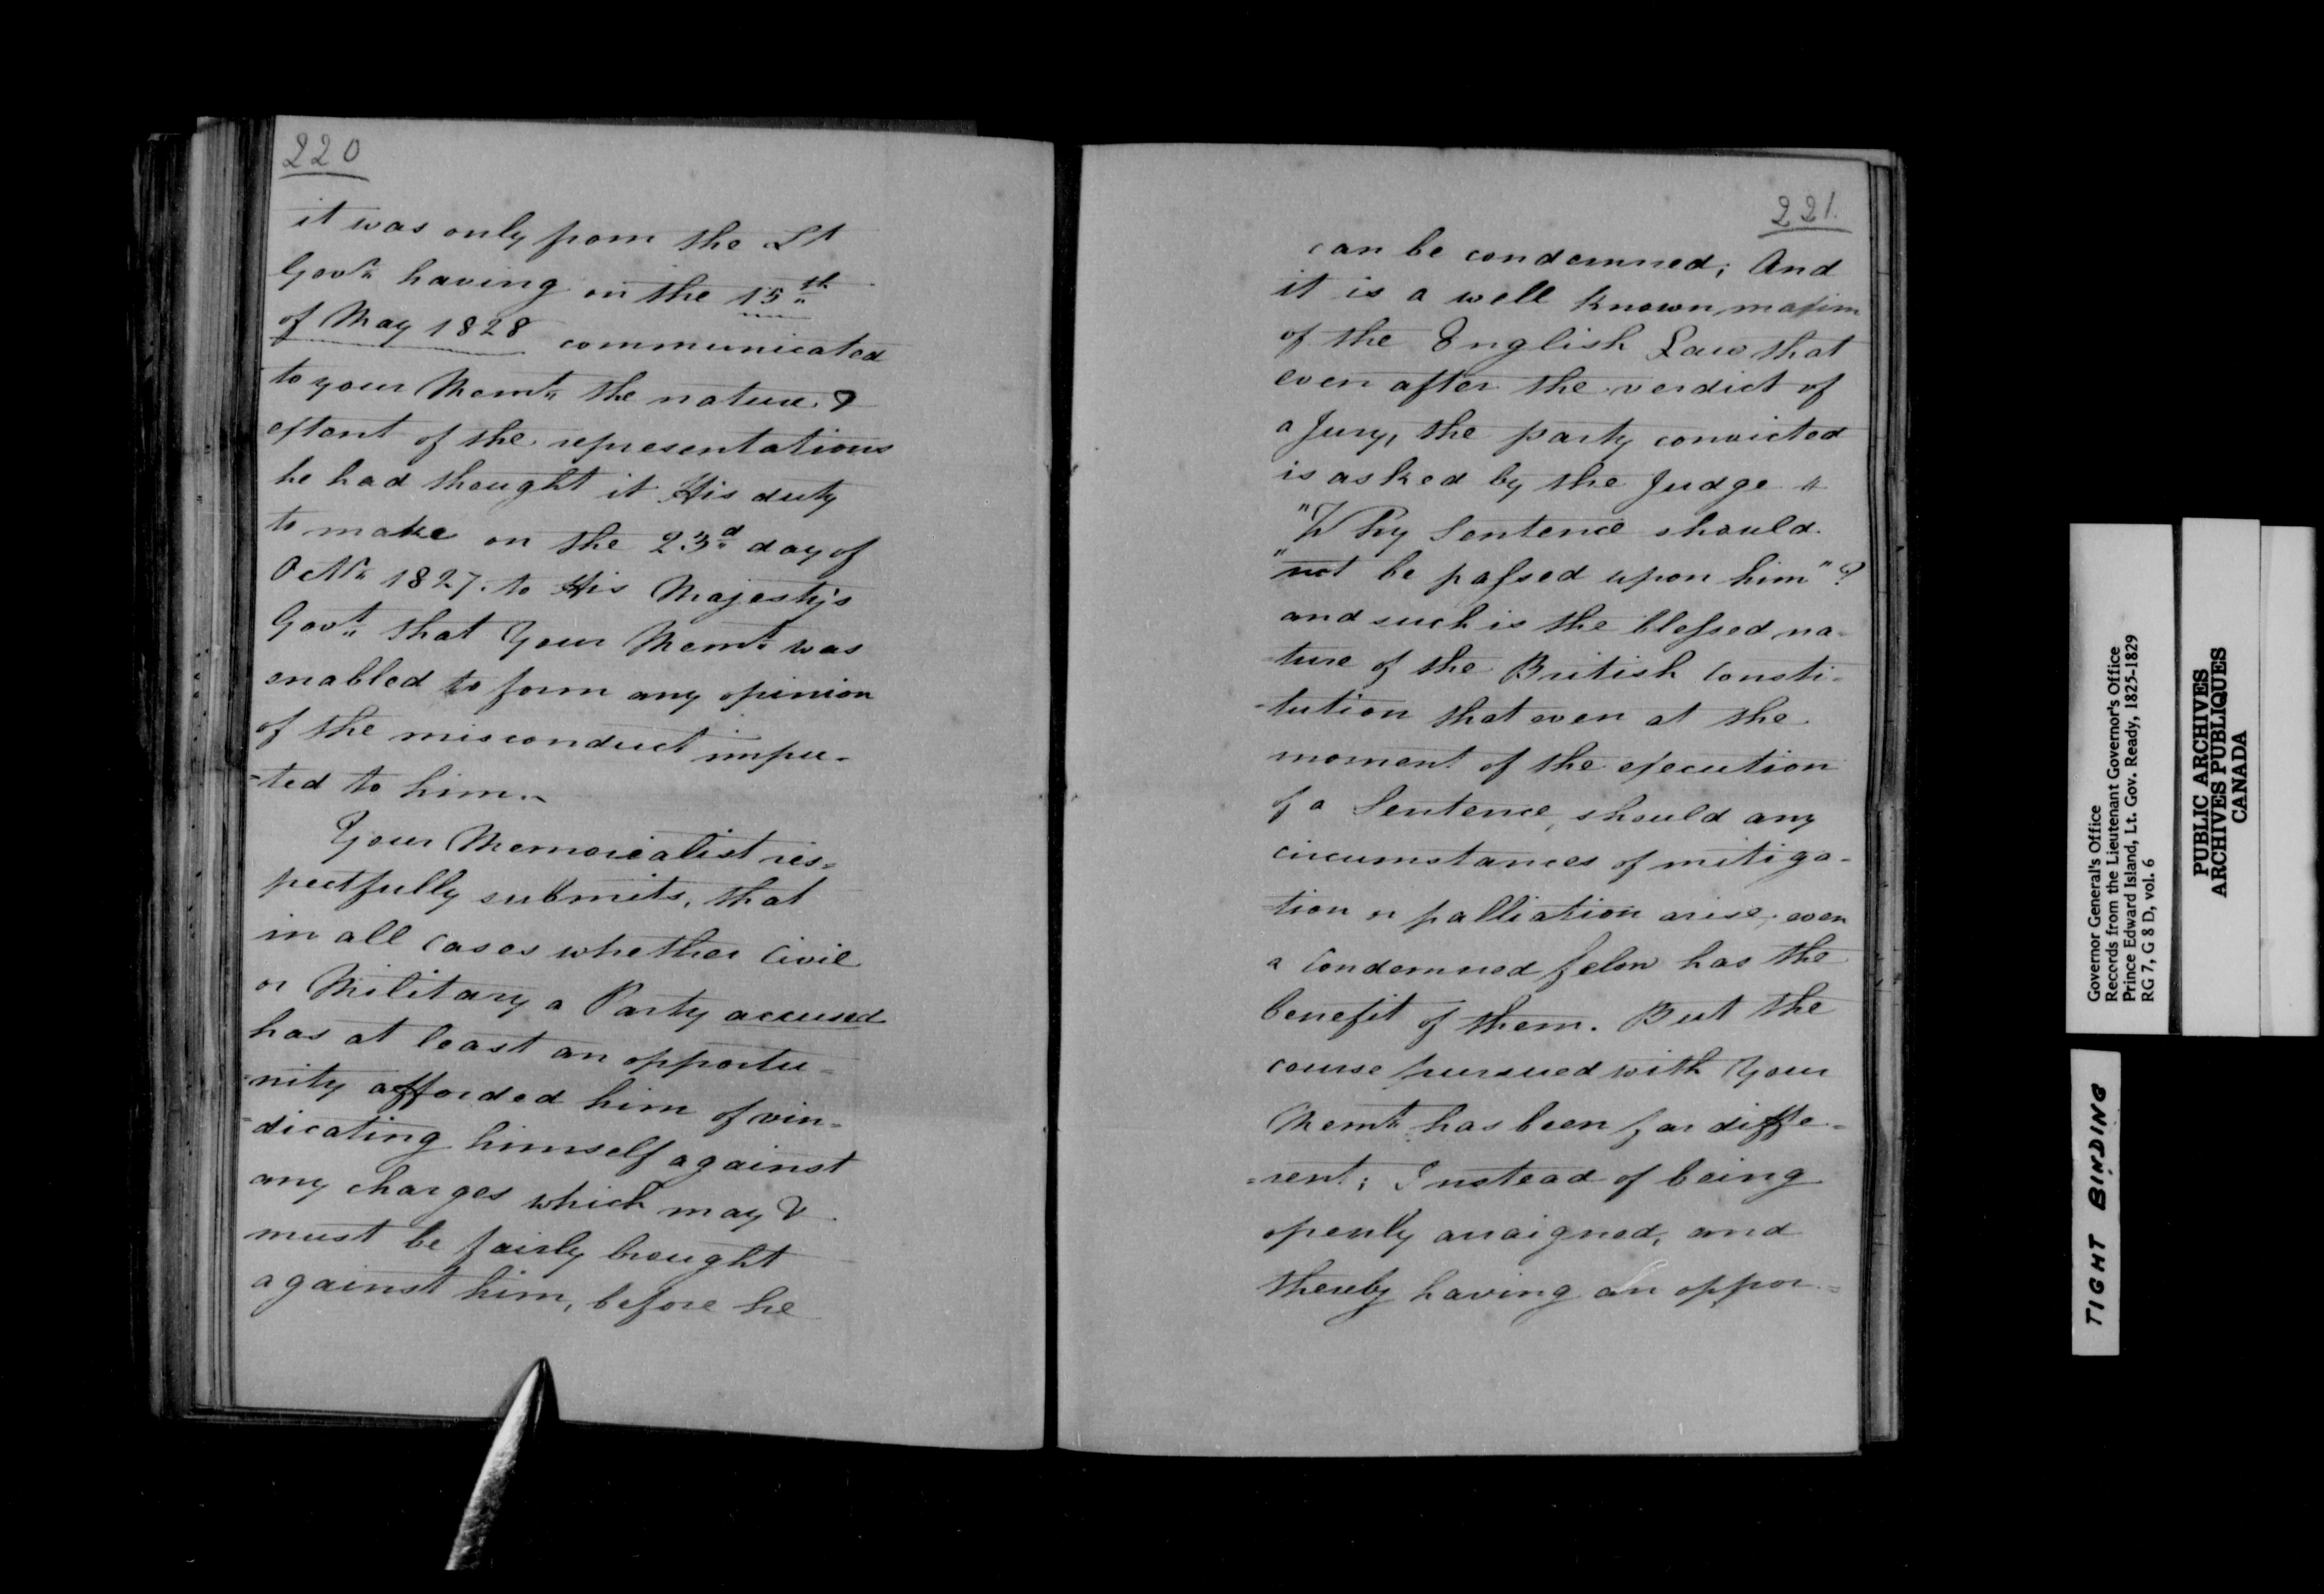 220
it was only from the Lt
Govr. having on the 15th
of May 1828 communicated
to your Memt. the nature &
extent of the representations
he had thought it His duty
to make on the 23d day of
Octr. 1827. to His Majesty's
Govt. that Your Memt. was
enabled to form any opinion
of the misconduct impu-
-ted to him.
Your Memorialist res=
pectfully submits, that
in all cases whether Civil
or Military a Party accused
has at least an opportu-
-nity afforded him of vin=
-dicating himself against
any charges which may &
must be fairly brought
against him, before he
221.
can be condemned; And
it is a well known maxim
of the English Law that
even after the verdict of
a Jury, the party convicted
is asked by the Judge
"Why Sentence should
"not be passed upon him"?
and such is the blessed na-
-ture of the British Consti-
-tution that even at the
moment of the execution
of a Sentence, should any
circumstances of mitiga-
tion or palliation arise, even
a Condemned felon has the
benefit of them. But the
course pursued with Your
Memt. has been far diffe-
=rent; Instead of being
openly arraigned, and
thereby having an oppor=
Governor General's Office
Records from the Lieutenant Governor's Office
Prince Edward Island, Lt. Gov. Ready, 1825-1829
RG 7, G 8 D, vol. 6
PUBLIC ARCHIVES
ARCHIVES PUBLIQUES
CANADA
TIGHT BINDING